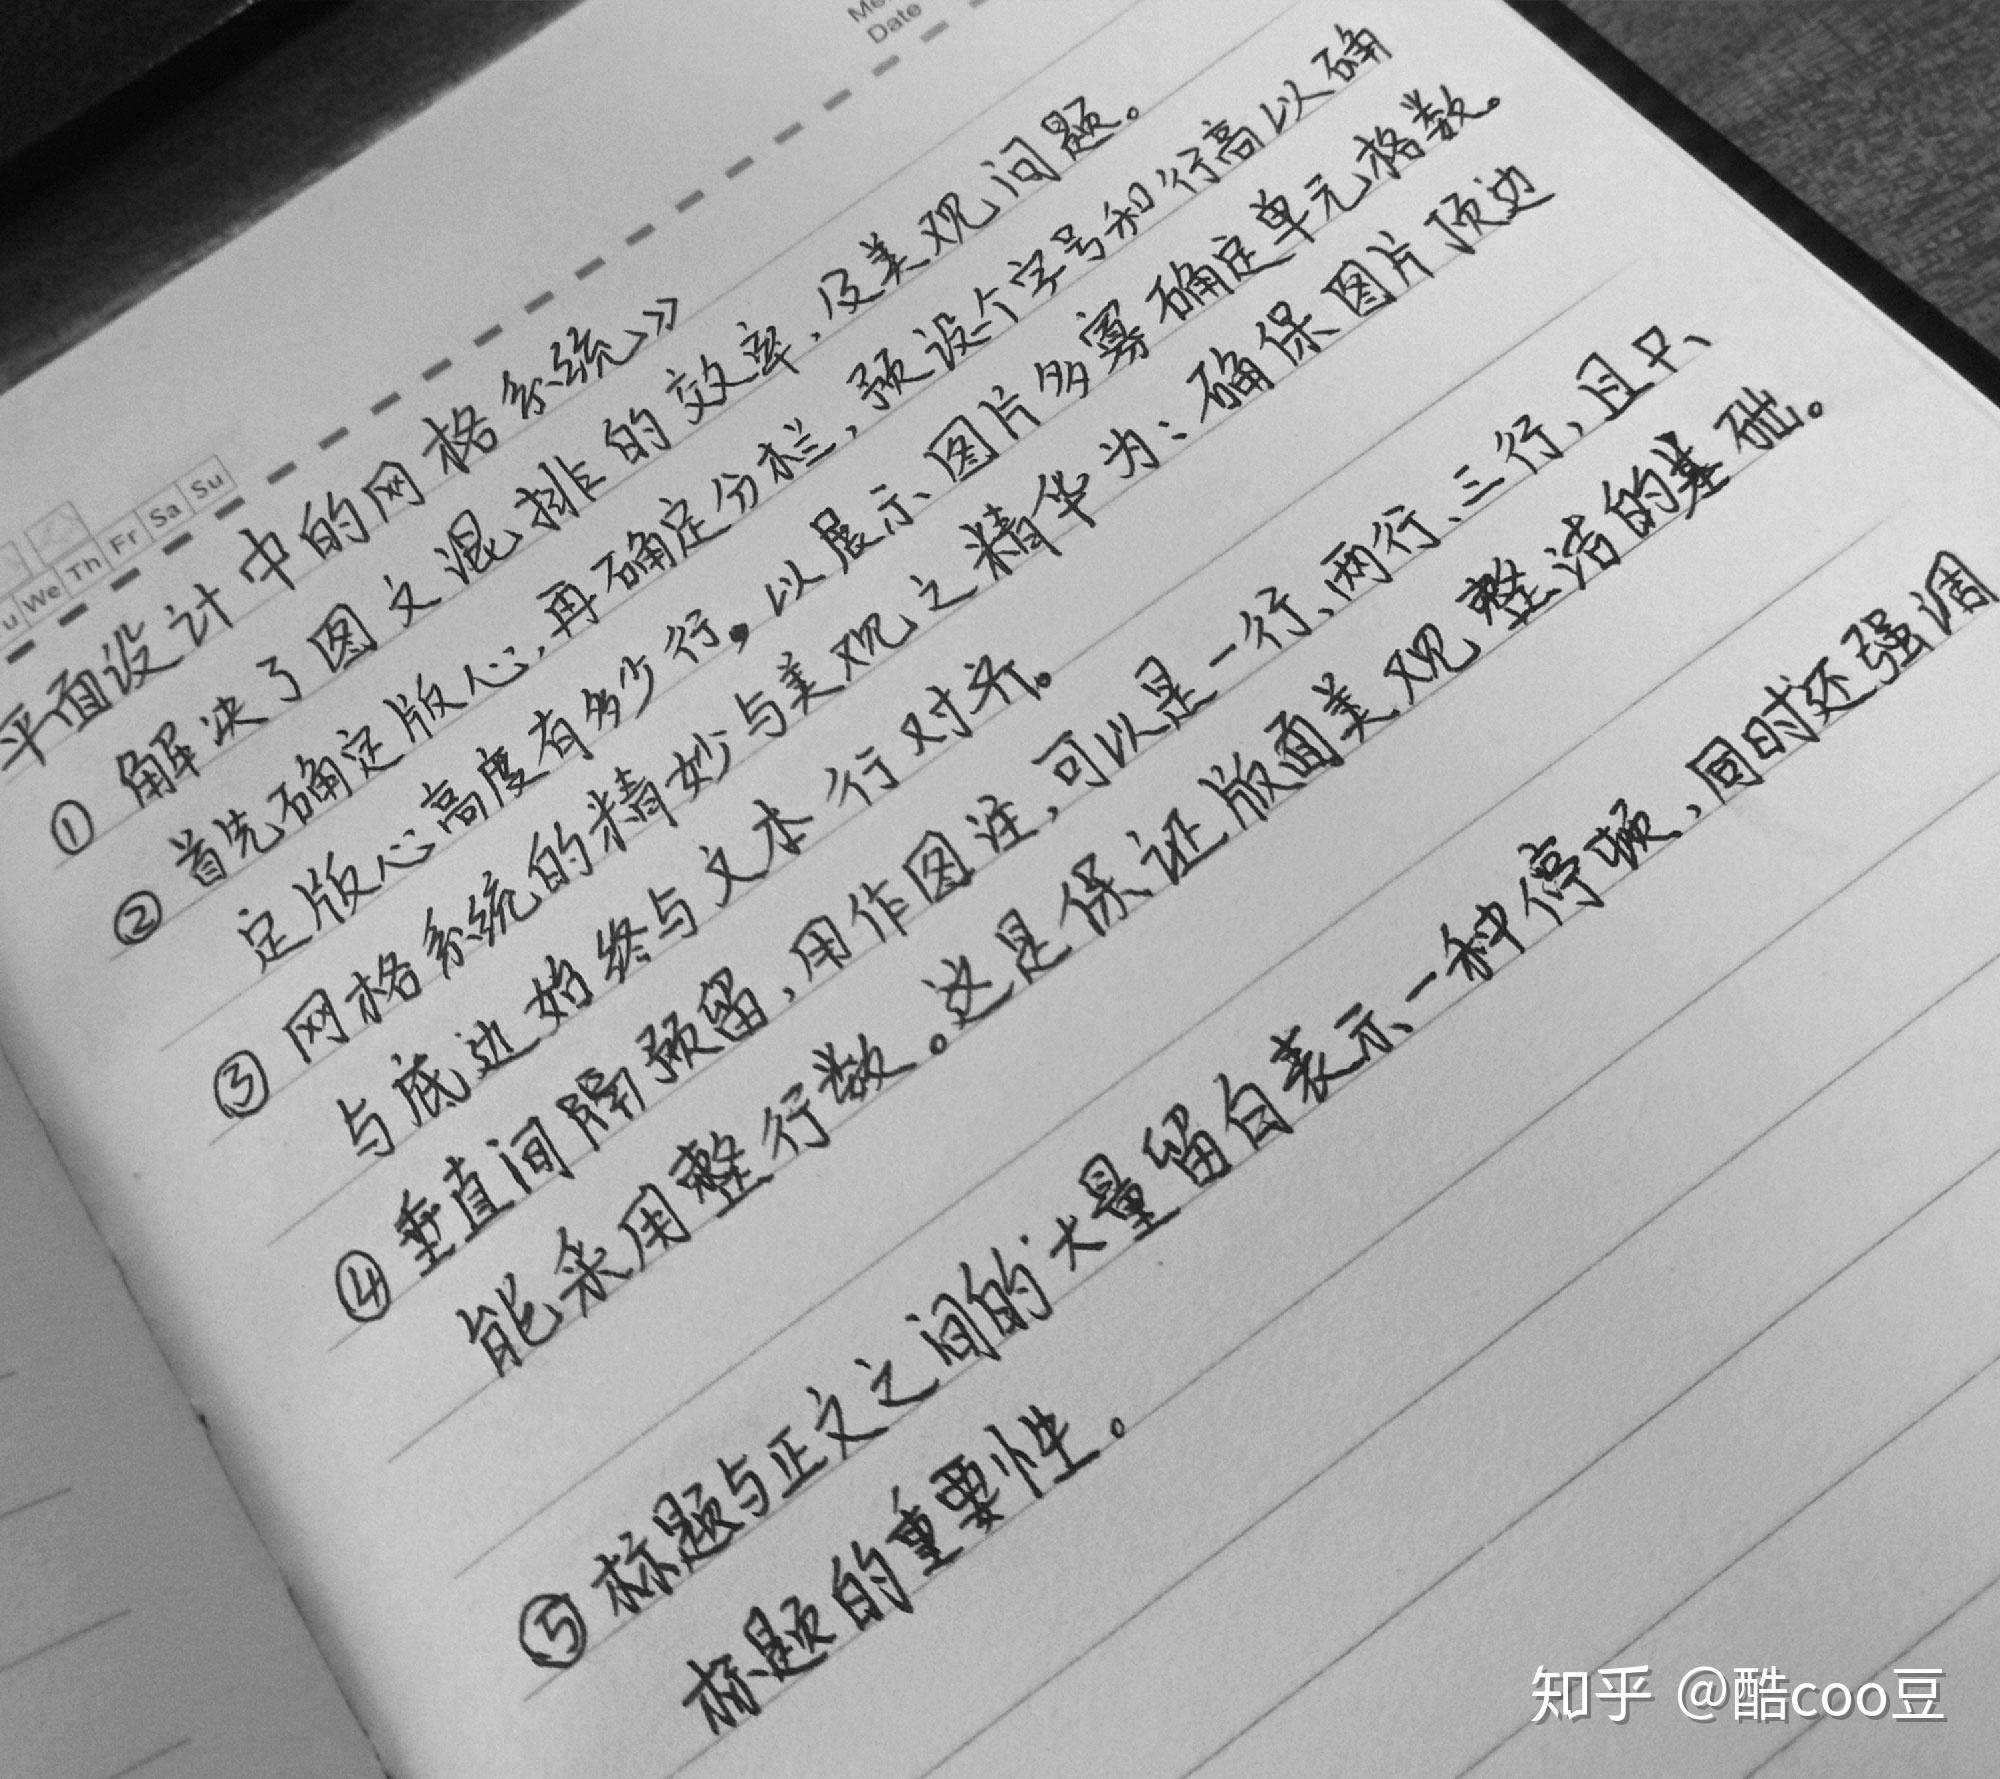 Date
We Th Fr Sa Su
平面设计中的网格系统》
① 解决了图文混排的效率,及美观问题。
② 首先确定版心,再确定分栏,预设个字号和行高以确
定版心高度有多少行。以展示图片多寡确定单元格数。
③ 网格系统的精妙与美观之精华为:确保图片顶边
与底边始终与文本行对齐。
④ 垂直间隔预留,用作图注,可以是一行、两行、三行,且只、
能采用整行数。这是保证版面美观整洁的基础。
⑤ 标题与正文之间的大量留白表示一种停顿,同时还强调
标题的重要性。
知乎 @酷coo豆